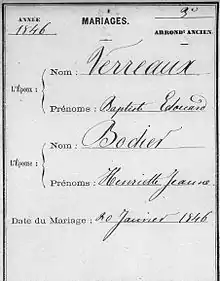 ANNÉE
1846
MARIAGES.
3e
ARRONDT ANCIEN.
L'Époux :
Nom : Verreaux
Prénoms : Baptiste Edouard
L'Épouse :
Nom : Bodier
Prénoms : Henriette Jeanne
Date du Mariage : 20 Janvier 1846